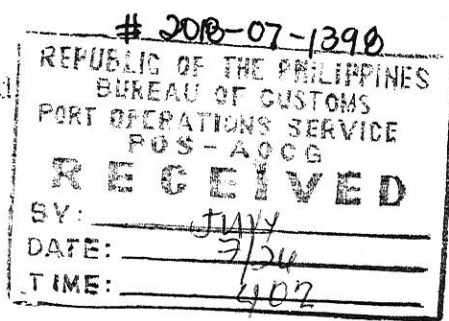 # 2018-07-1398
REPUBLIC OF THE PHILIPPINES
BUREAU OF CUSTOMS
PORT OPERATIONS SERVICE
POS-AOCG
RECEIVED
BY:
DATE: 7/26
TIME: 402